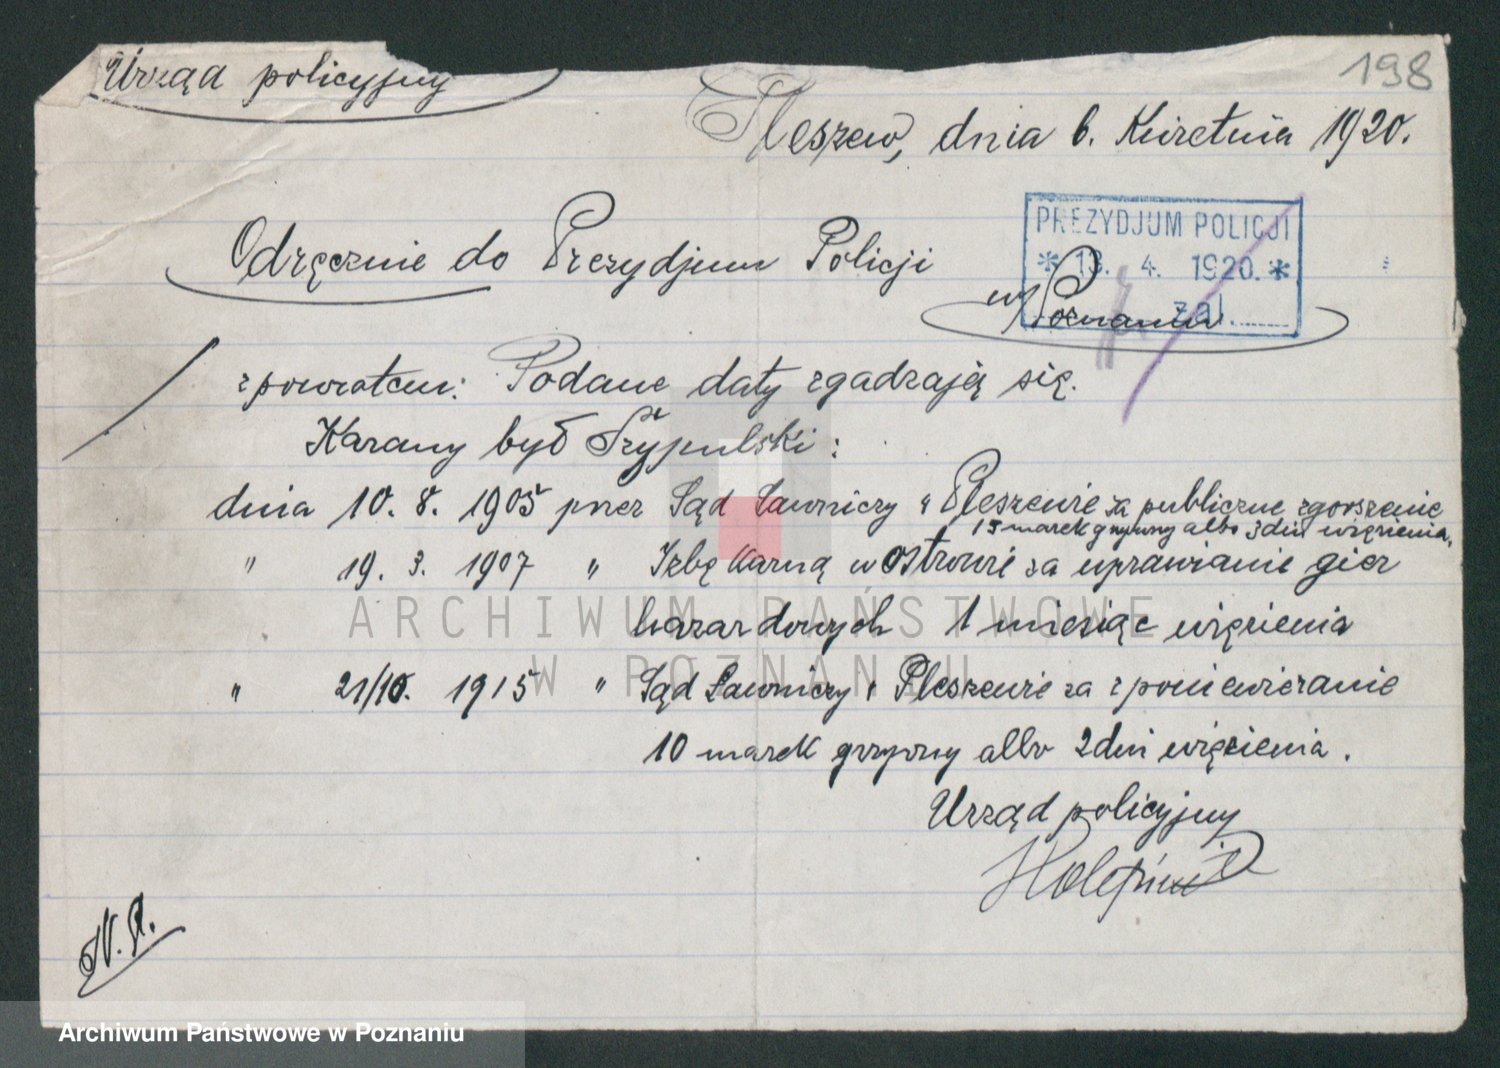 198
Urząd policyjny
Pleszew, dnia 6. Kwietnia 1920.
PREZYDJUM POLICJI
* 13. 4. 1920. *
zał.
Odręcznie do Prezydjum Policji
w Poznaniu
z powrotem: Podane daty zgadzają się.
Karany był Szypulski:
dnia 10. 8. 1905 przez Sąd Ławniczy w Pleszewie za publiczne zgorszenie
15 marek grzywny albo 3 dni więzienia,
" 19. 3. 1907 " Izbę Karną w Ostrowie za uprawianie gier
hazardowych 1 miesiąc więzienia
" 21/10. 1915 " Sąd Ławniczy w Pleszewie za sponiewieranie
10 marek grzywny albo 2 dni więzienia.
Urząd policyjny
ARCHIWUM PAŃSTWOWE
W POZNANIU
Archiwum Państwowe w Poznaniu